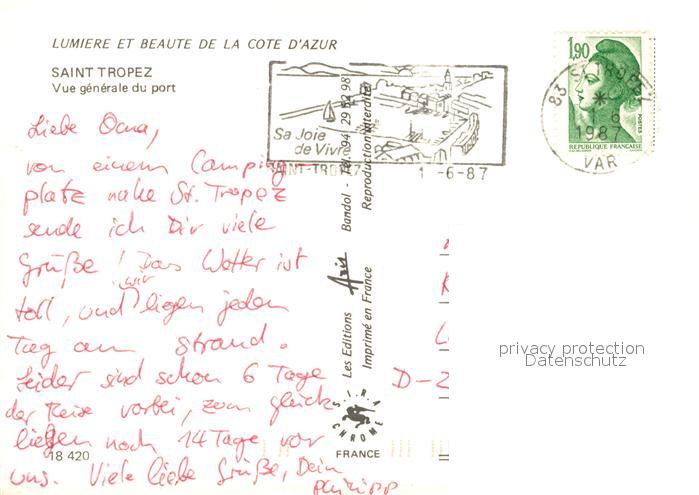 LUMIERE ET BEAUTE DE LA COTE D'AZUR
SAINT TROPEZ
Vue générale du port
Liebe Oma,
von einem Camping
platz nahe St. Tropez
sende ich Dir viele
Grüße! Das Wetter ist
toll, und wir liegen jeden
Tag am Strand.
Leider sind schon 6 Tage
der Reise vorbei, zum glück
ließen noch 14 Tage vor
uns. Viele liebe Grüße, Dein
Philipp
18 420
Sa Joie
de Vivre
SAINT-TROPEZ
1-6-87
Les Editions Aris Bandol - Tél. 94 29 52 98
Imprimé en France Reproduction interdite
S.I.R.A.
CHROME
FRANCE
1,90
POSTES
REPUBLIQUE FRANÇAISE
83 ST TROPEZ
1-6
1987
VAR
D-2
privacy protection
Datenschutz